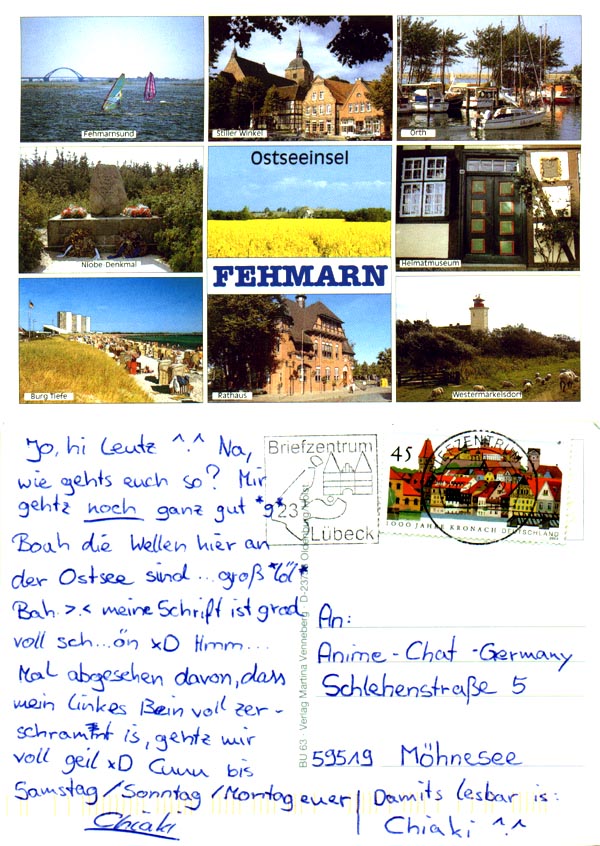 Fehmarnsund
Stiller Winkel
Orth
Niobe Denkmal
Ostseeinsel
FEHMARN
Heimatmuseum
Burg Tiefe
Rathaus
Westermarkelsdorf
Jo, hi Leutz ^.^ Na,
wie gehts euch so? Mir
gehtz noch ganz gut *g*
Boah die Wellen hier an
der Ostsee sind... groß *löl*
Bah >.< meine Schrift ist grad
voll sch...ön xD Hmm...
Mal abgesehen davon, dass
mein linkes Bein voll zer-
schrammt is, gehtz mir
voll geil xD Cuuu bis
Samstag/Sonntag/Montag euer
Chiaki
Briefzentrum
23
Lübeck
45
BRIEFZENTRUM
1000 JAHRE KRONACH DEUTSCHLAND
BU 63 · Verlag Martina Venneberg · D-23758 Oldenburg
An:
Anime-Chat-Germany
Schlehenstraße 5
59519 Möhnesee
Damits lesbar is:
Chiaki ^.^